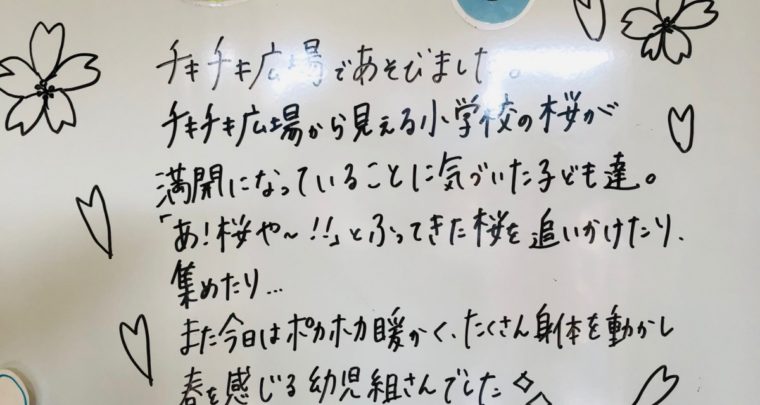 チキチキ広場であそびました。
チキチキ広場から見える小学校の桜が
満開になっていることに気づいた子ども達。
「あ!桜や～!!」とふってきた桜を追いかけたり、
集めたり…
また今日はポカポカ暖かく、たくさん身体を動かし
春を感じる幼児組さんでした